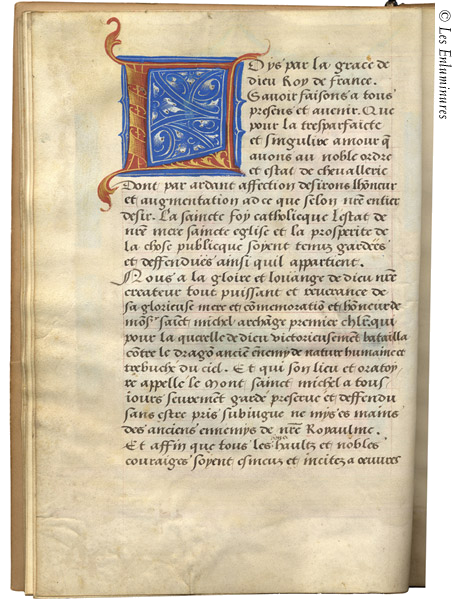 Loys par la grace de
dieu Roy de france.
Savoir faisons a tous
presens et avenir. Que
pour la tresparfaicte
et singuliere amour q̃
avons au noble ordre
et estat de chevallerie
Dont par ardant affection desirons lhõneur
et augmentation ad ce que selon nr̃e entier
desir. La saincte foy catholicque lestat de
nr̃e mere saincte eglise et la prosperite de
la chose publicque soyent tenuz gardees
et deffendues ainsi quil appartient.
Nous a la gloire et louange de dieu nr̃e
createur tout puissant et reverance de
sa glorieuse mere et comemoratiõ et hõneur de
mõs.r saĩct michel archãge premier chl̃r qui
pour la querelle de dieu victorieusemẽt batailla
cõtre le dragõ anciẽ ẽnemy de natur humaine et
trebucha du ciel. Et qui son lieu et oratoy
re appelle le Mont sainct michel a tous
iours seurement garde preserve et deffendu
sans estre pris subiugue ne mys es mains
des anciens ennemys de nr̃e Royaulme.
Et affin que tous les haultz et nobles
couraiges soyent esmeuz et incitez a oeuvres
© Les Enluminures